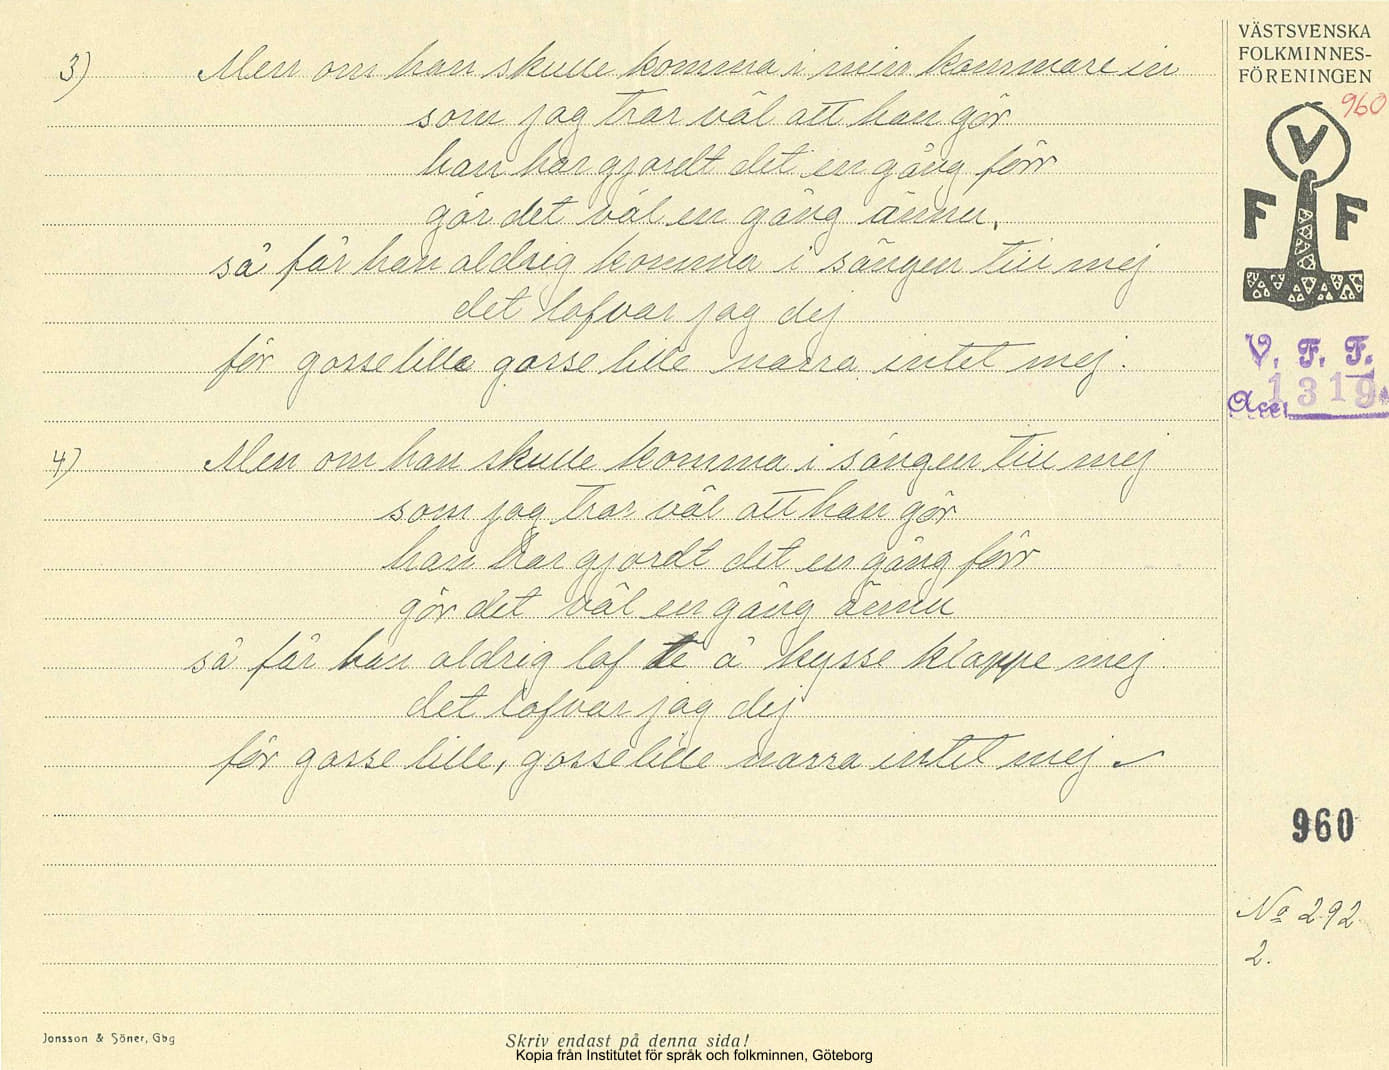 3) Men om han skulle komma i min kammare in
som jag trar väl att han gör
han har gjordt det en gång förr
gör det väl en gång ännu.
så får han aldrig komma i sängen till mej
det lofvar jag dej
för gosse lille gosse lille narra intet mej.
4) Men om han skulle komma i sängen till mej
som jag trar väl att han gör
han har gjordt det en gång förr
gör det väl en gång ännu
så får han aldrig lof te å kysse klappe mej
det lofvar jag dej
för gosse lille, gosse lille narra intet mej
VÄSTSVENSKA
FOLKMINNES-
FÖRENINGEN
960
V
F F
V. F. F.
Acc. 1319
960
No 292
2.
Jonsson & Söner, Gbg
Skriv endast på denna sida!
Kopia från Institutet för språk och folkminnen, Göteborg